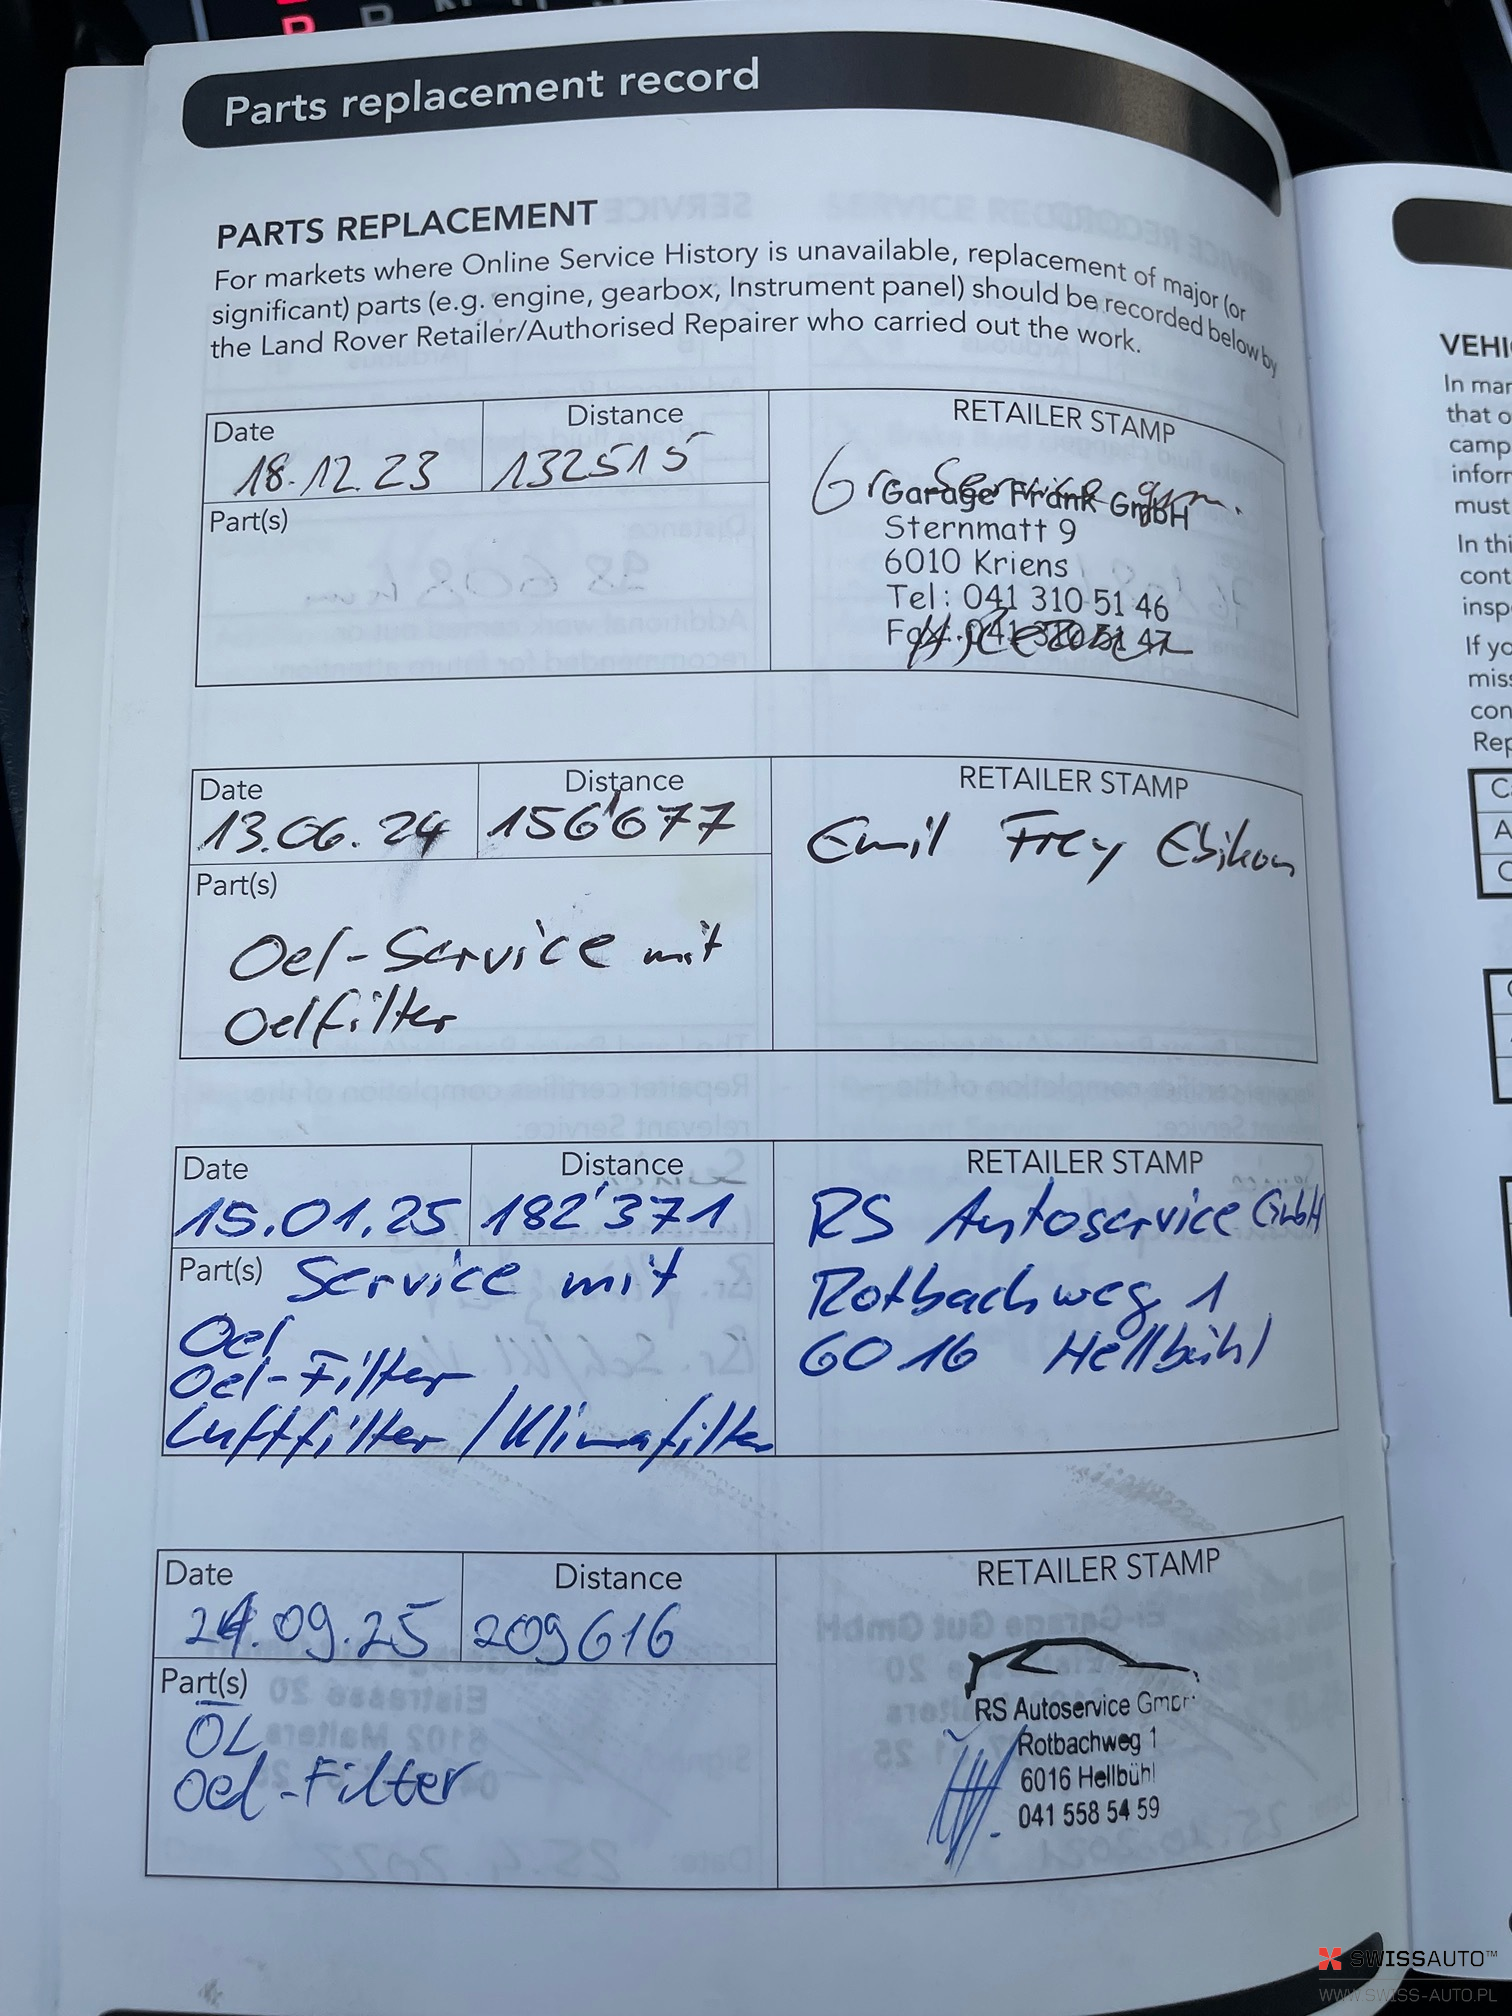 Parts replacement record
PARTS REPLACEMENT
For markets where Online Service History is unavailable, replacement of major (or
significant) parts (e.g. engine, gearbox, Instrument panel) should be recorded below by
the Land Rover Retailer/Authorised Repairer who carried out the work.
Date
Distance
RETAILER STAMP
18.12.23
132515
Part(s)
Gr. Service gem.
Garage Frank GmbH
Sternmatt 9
6010 Kriens
Tel: 041 310 51 46
Fax: 041 310 51 47
Date
Distance
RETAILER STAMP
13.06.24
156'677
Emil Frey Ebikon
Part(s)
Oel-Service mit
Oelfilter
Date
Distance
RETAILER STAMP
15.01.25
182'371
RS Autoservice GmbH
Rotbachweg 1
6016 Hellbühl
Part(s)
Service mit
Oel
Oel-Filter
Luftfilter / Klimafilter
Date
Distance
RETAILER STAMP
24.09.25
209616
Part(s)
ÖL
Oel-Filter
RS Autoservice GmbH
Rotbachweg 1
6016 Hellbühl
041 558 54 59
VEHI
In mar
that o
camp
inforr
must
In thi
cont
insp
If yo
miss
con
Rep
SWISSAUTO™
WWW.SWISS-AUTO.PL